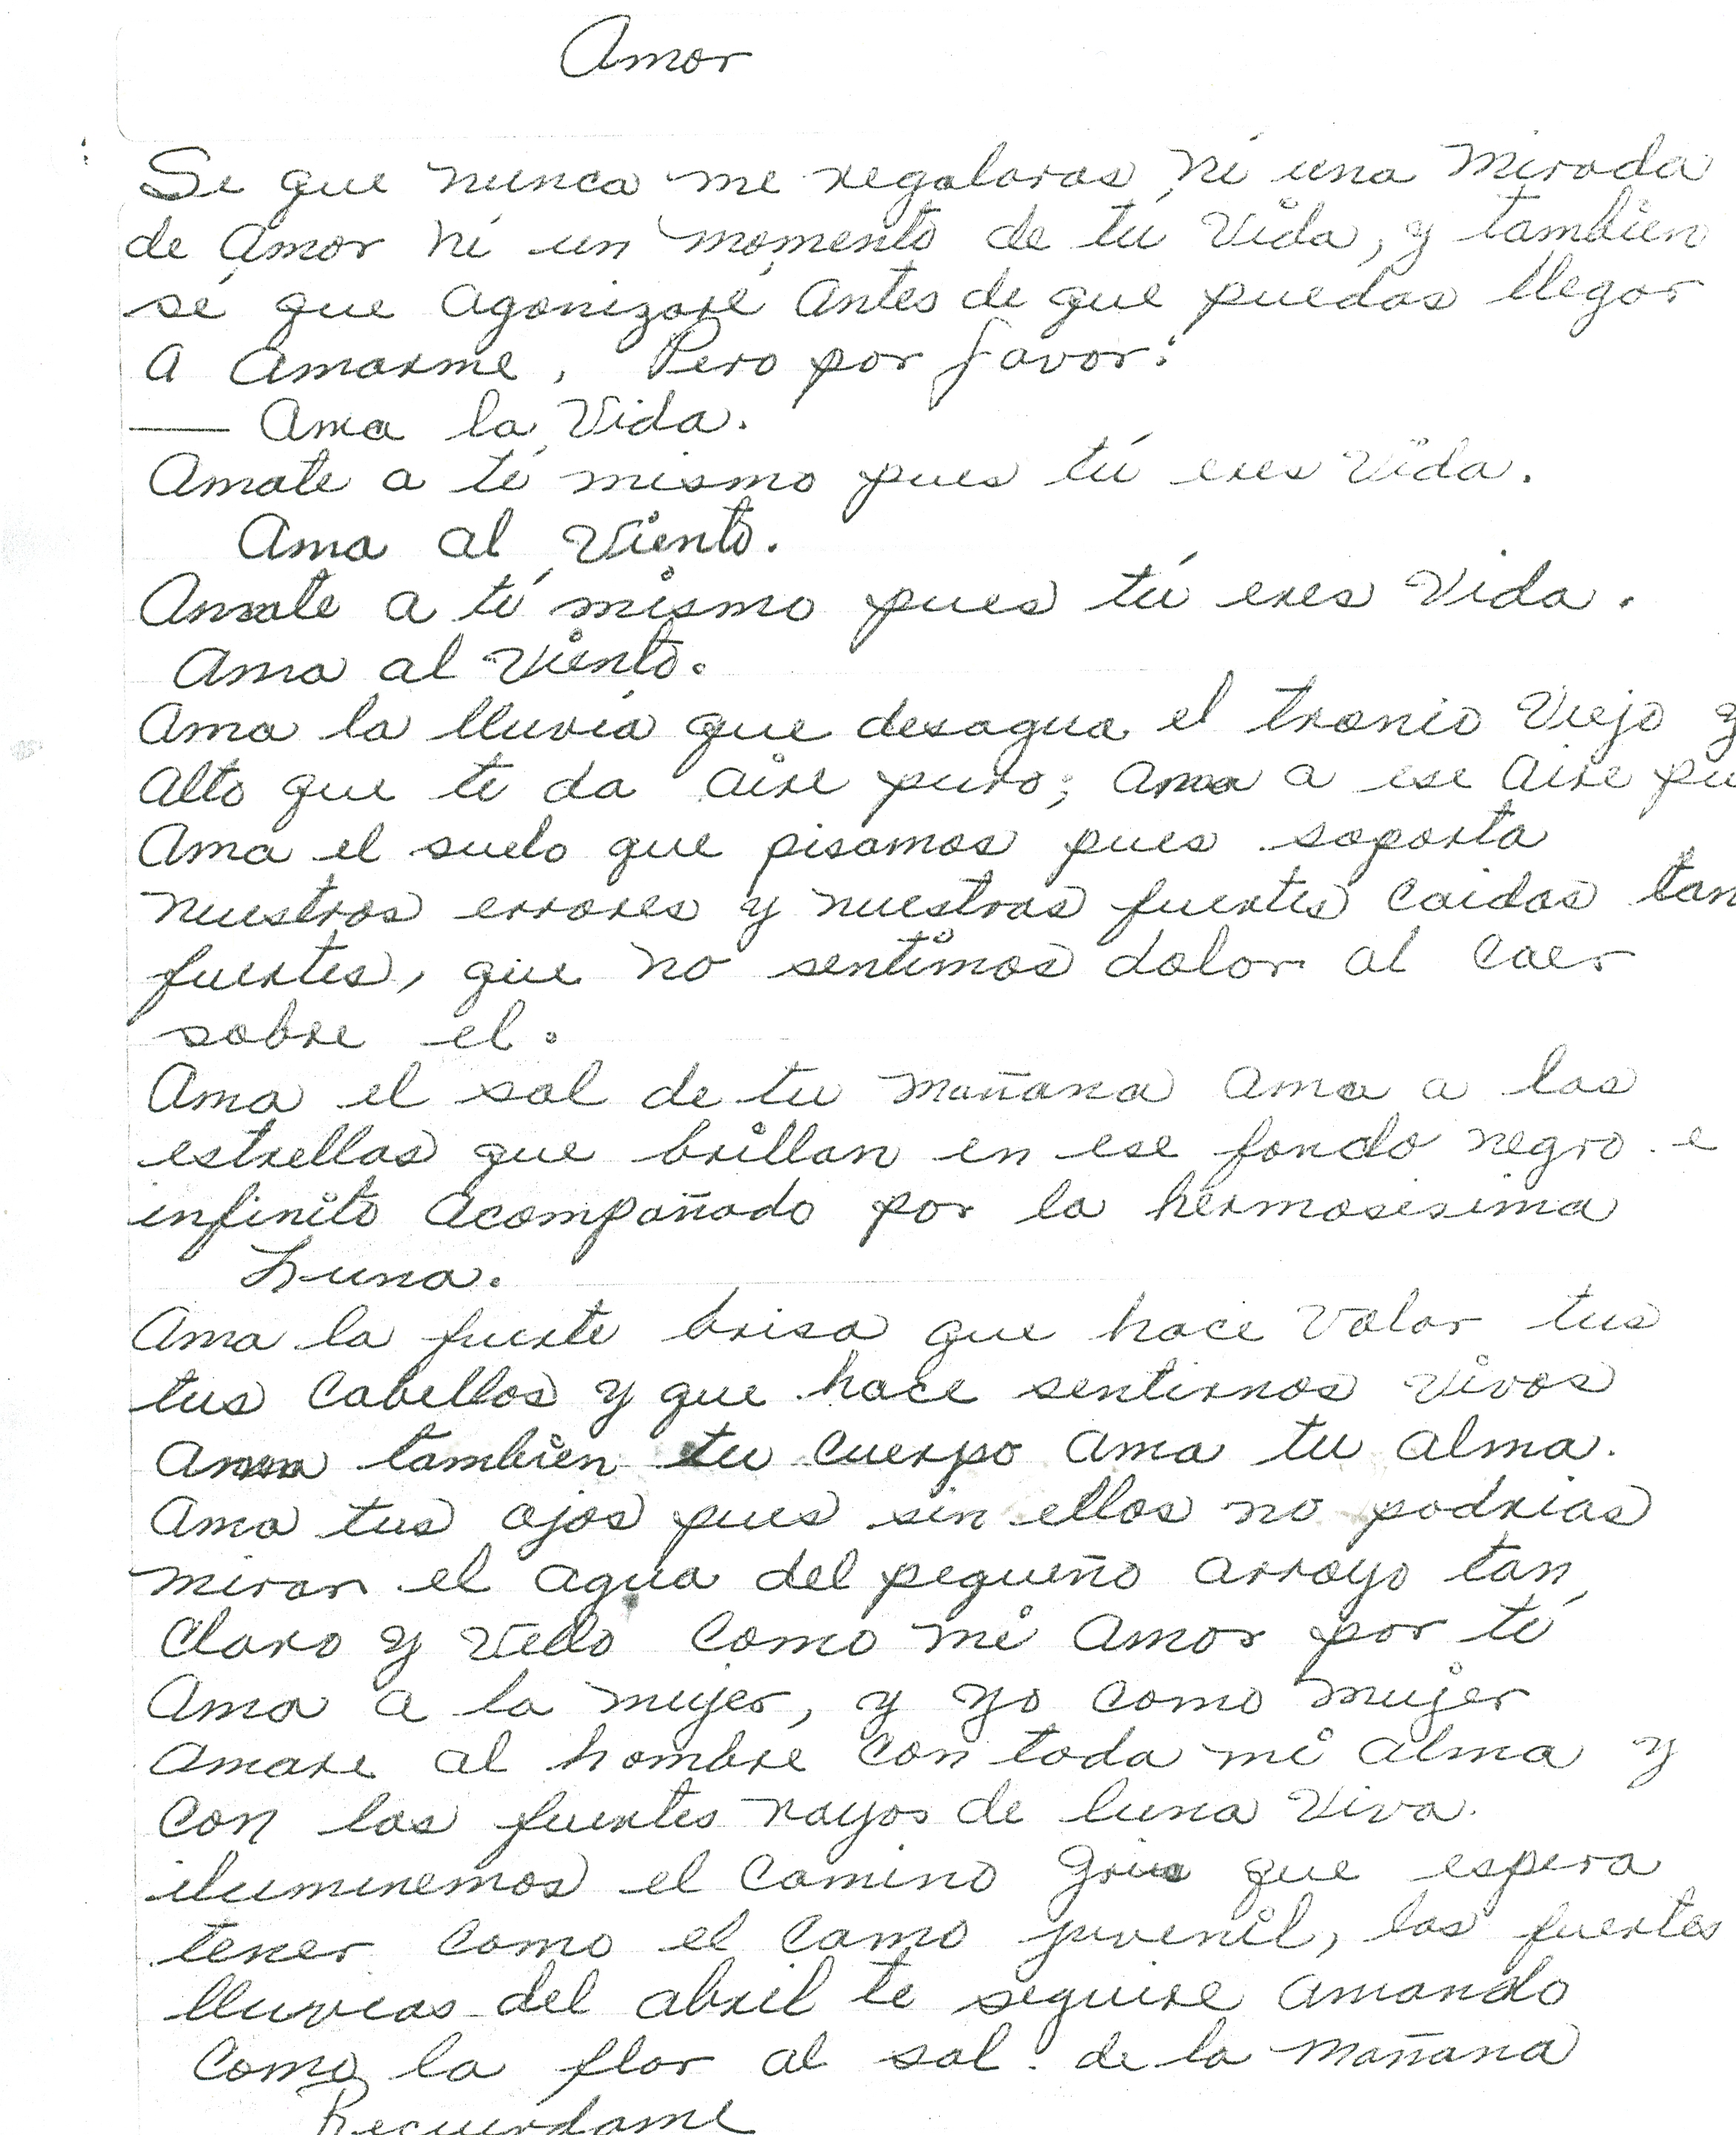 Amor
Se que nunca me regalaras ni una mirada
de amor ni un momento de tú Vida, y tambien
sé que agonizaré antes de que puedas llegar
a amarme, Pero por favor:
— Ama la Vida.
Amate a tí mismo pues tú eres Vida.
Ama al Viento.
Amate a tí mismo pues tú eres Vida.
Ama al Viento.
Ama la lluvia que desagua el tronio Viejo y
Alto que te da aire puro; ama a ese aire pu
Ama el suelo que pisamos pues soporta
nuestros errores y nuestras fuertes caidas tan
fuertes, que no sentimos dolor al caer
sobre el.
Ama el sol de tu mañana ama a las
estrellas que brillan en ese fondo negro e
infinito acompañado por la hermosisima
Luna.
Ama la fuerte brisa que hace volar tus
tus cabellos y que hace sentirnos vivos
Ama tambien tu cuerpo ama tu alma.
Ama tus ojos pues sin ellos no podrias
mirar el agua del pequeño arroyo tan
claro y vello como mi amor por tí
Ama a la mujer, y yo como mujer
amare al hombre con toda mi alma y
con los fuertes rayos de luna viva.
iluminemos el camino gris que espera
tener como el camo juvenil, las fuertes
lluvias del abril te seguire amando
como la flor al sol de la mañana
Recuerdame